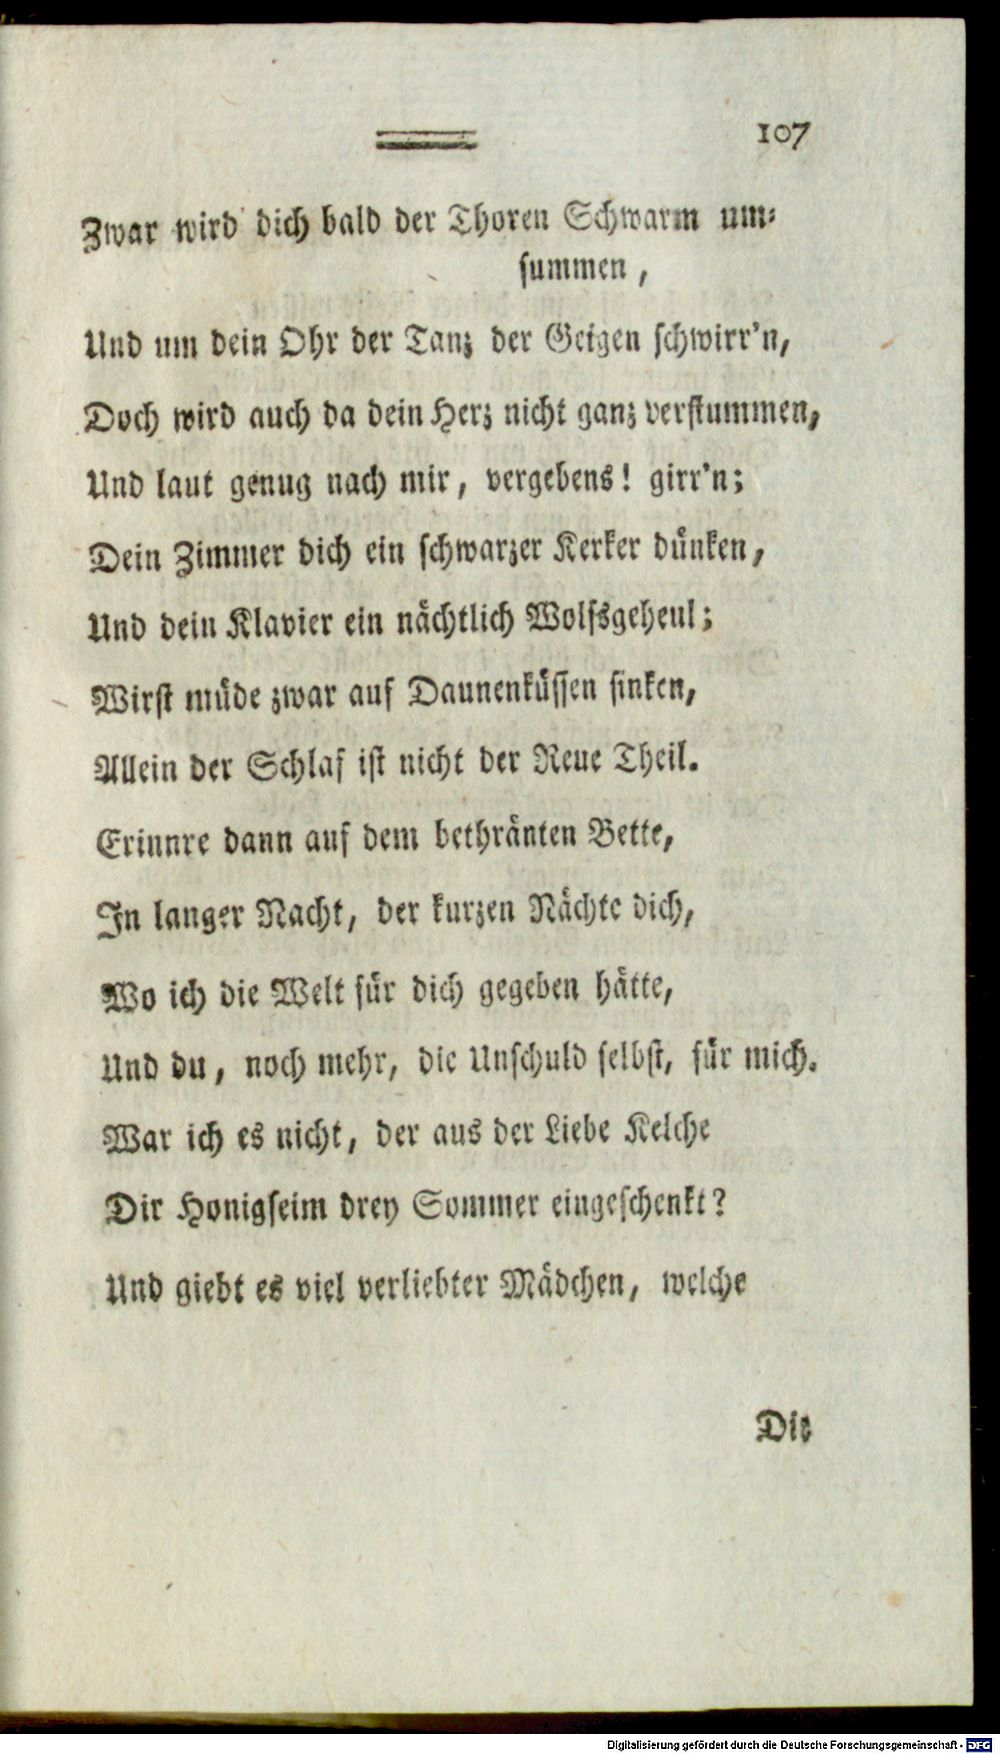 107
Zwar wird dich bald der Thoren Schwarm um-
summen,
Und um dein Ohr der Tanz der Geigen schwirr'n,
Doch wird auch da dein Herz nicht ganz verstummen,
Und laut genug nach mir, vergebens! girr'n;
Dein Zimmer dich ein schwarzer Kerker dünken,
Und dein Klavier ein nächtlich Wolfsgeheul;
Wirst müde zwar auf Daunenküssen sinken,
Allein der Schlaf ist nicht der Reue Theil.
Erinnre dann auf dem bethränten Bette,
In langer Nacht, der kurzen Nächte dich,
Wo ich die Welt für dich gegeben hätte,
Und du, noch mehr, die Unschuld selbst, für mich.
War ich es nicht, der aus der Liebe Kelche
Dir Honigseim drey Sommer eingeschenkt?
Und giebt es viel verliebter Mädchen, welche
Die
Digitalisierung gefördert durch die Deutsche Forschungsgemeinschaft - DFG